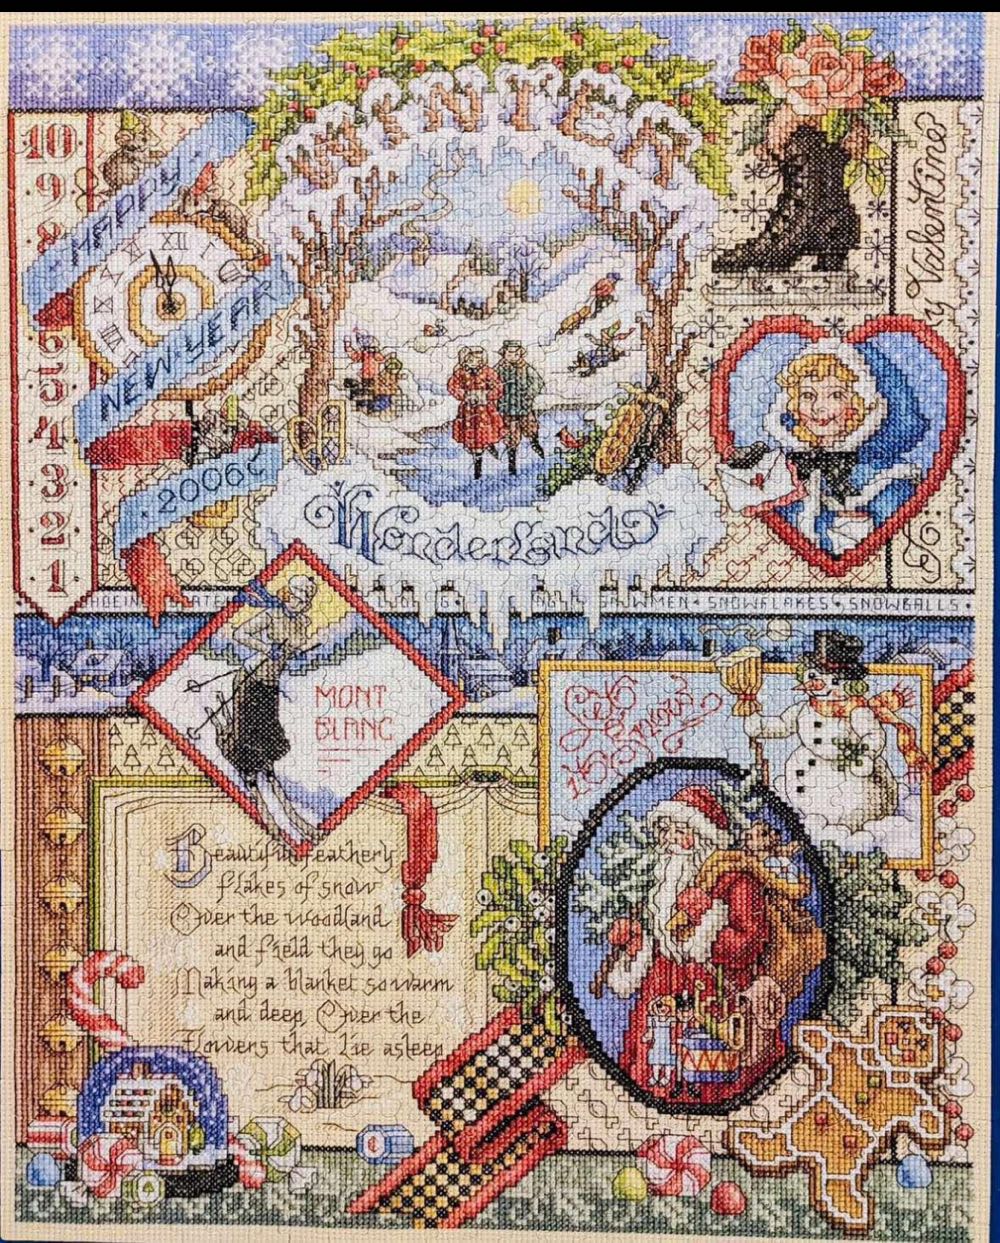 WINTER
10
9
8
6
5
4
3
2
1
HAPPY
NEW YEAR!
2006
XII
Wonderland
Valentine
SNOWMEN • SNOWFLAKES • SNOWBALLS •
MONT
BLANC
Beautiful feathery
flakes of snow
Over the woodland
and field they go
Making a blanket so warm
and deep, Over the
flowers that lie asleep